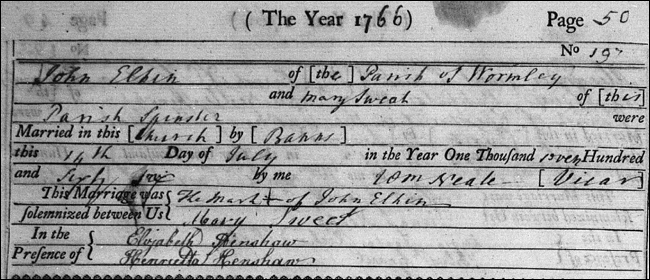 ( The Year 1766) Page 50
No 197
John Elkin of [the] Parish of Wormley
and Mary Sweat of [this]
Parish Spinster were
Married in this [Church] by [Banns]
this 14th Day of July in the Year One Thousand seven Hundred
and Sixty Six by me Wm Neale [Vicar]
This Marriage was { The Mark + of John Elkin
solemnized between Us { Mary Sweet
In the { Elizabeth Henshaw
Presence of { Henrietta Henshaw